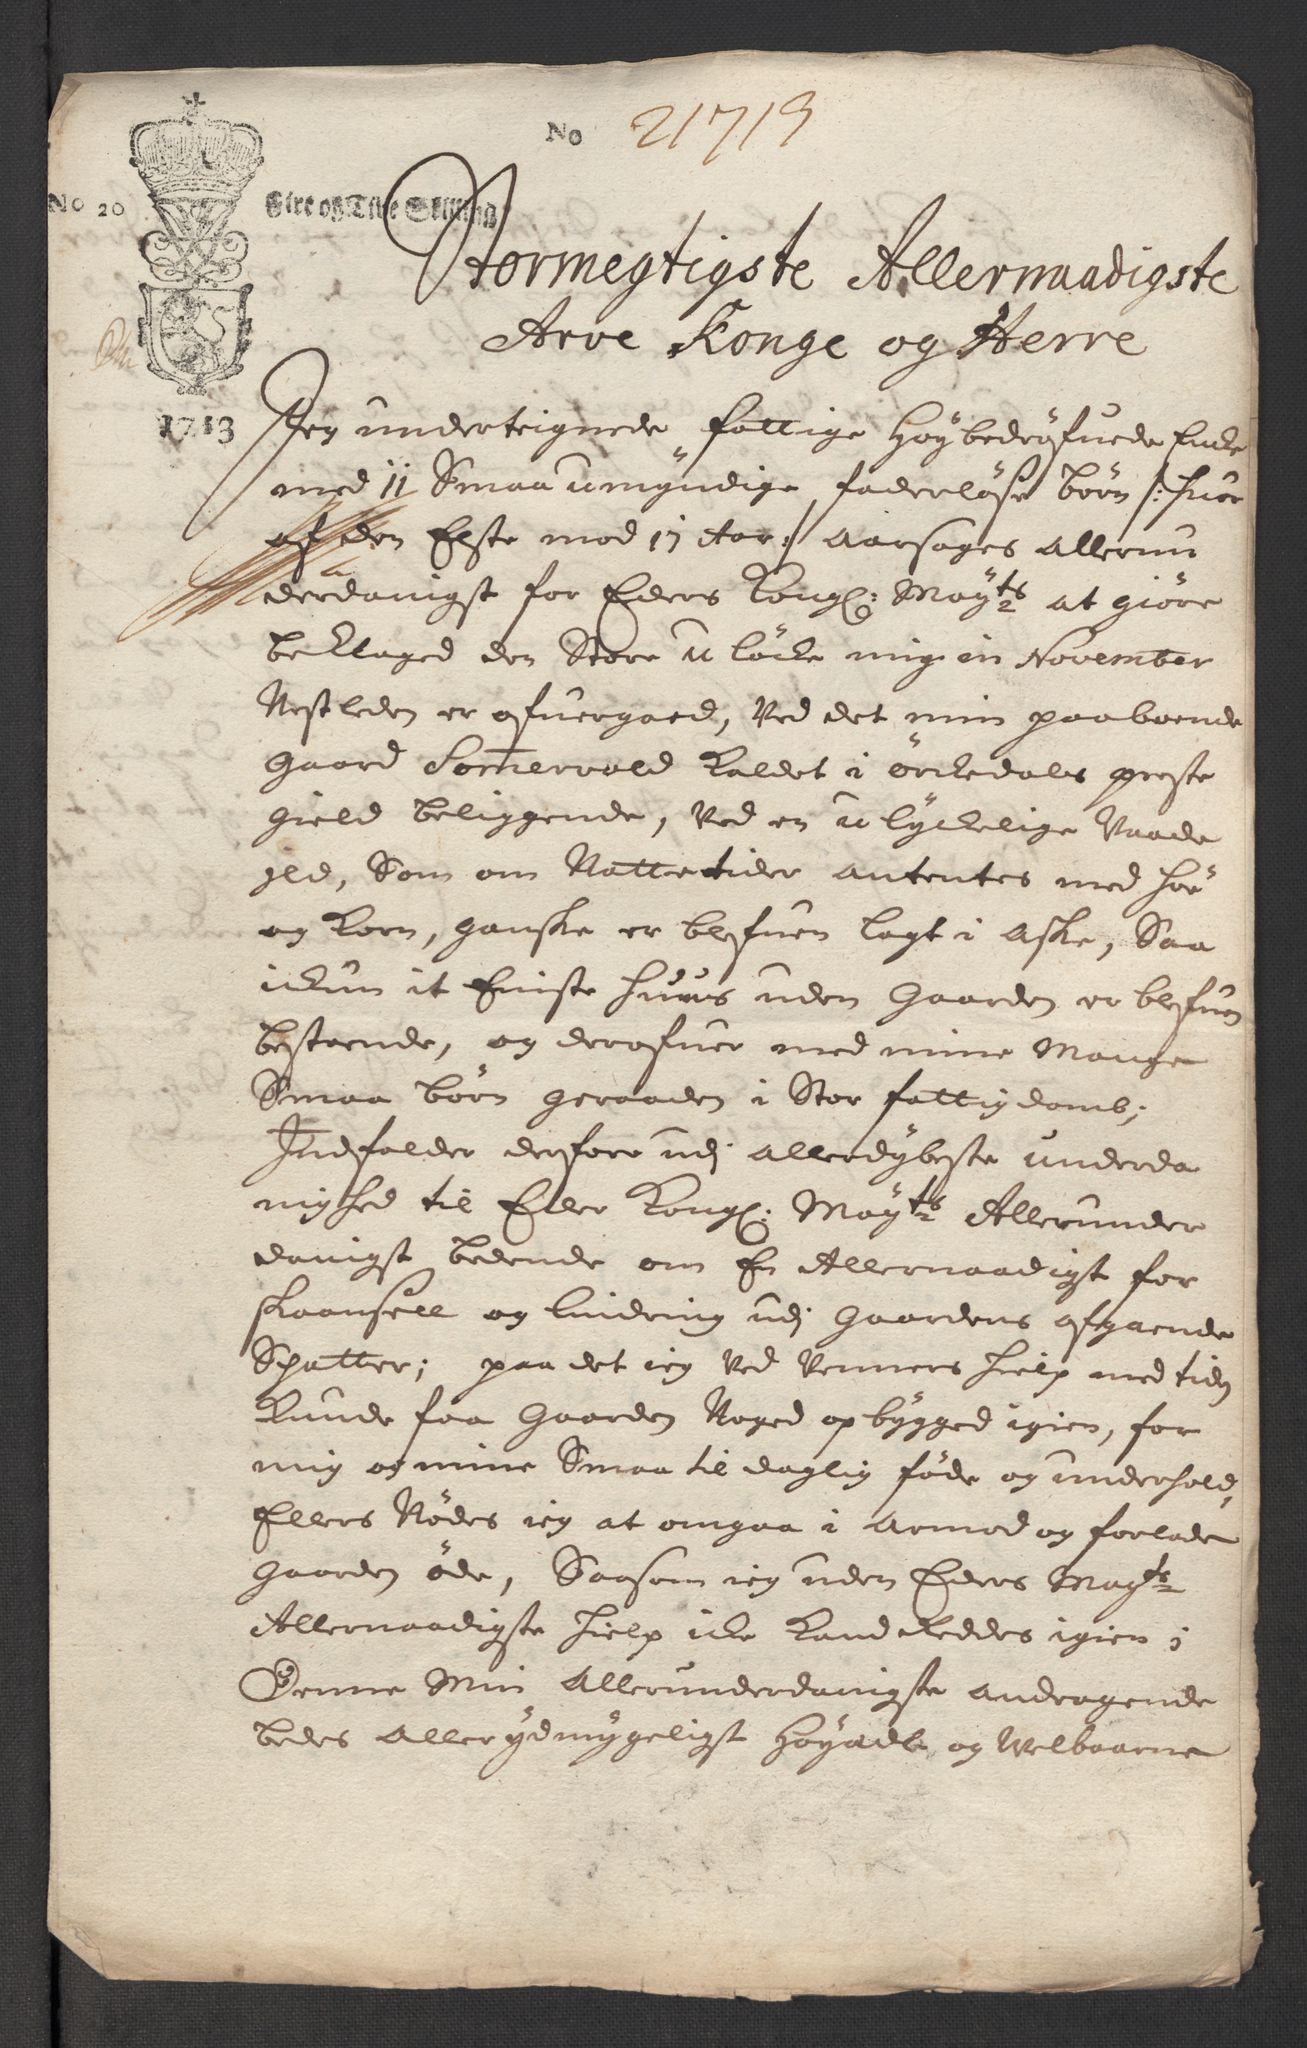 No 21719
No 20
Fire og Tive Skilling
1713
Stormegtigste Allernaadigste
Arve Konge og Herre
Jeg underteignede fattige Høybedrøfuede Encke
med 11 Smaa umÿndige faderløse børn /: huor
af den Elste mod 17 Aar :/ Aarsages allerun
derdanigst for Eders Kongl: Maÿts at giøre
beklaged den Store u løcke mig in November
Nestleden er ofuergaed, Ved det min paaboende
gaard Somervold kaldet i örckedals preste
gield beliggende, Ved en ulÿckelige Vaade
jld, Som om Nattetider antentes med høe
og korn, ganske er blefuen lagt i aske, Saa
ickun it Eniste huus uden gaarden er blefuen
bestaende, og derofuer med mine Mange
Smaa børn geraaden i Stor fattigdomb;
Indfalder derfore udj allerdÿbeste underda
nighed til Eder Kongl: Maÿts Allerunder
danigst bedende om En Allernaadigst for
skaansell og lindring udj gaardens afgaende
Schatter; paa det ieg Ved Venners hielp med tiden
kunde faa gaarden Noged opbÿgged igien, for
mig og mine Smaa til daglig føde og underhold,
Ellers Nødes ieg at omgaa i armod og forlade
gaarden øde, Saasom ieg uden Eders Mayts
Allernaadigste hielp icke kand reddes igien;
Denne Min allerunderdanigste andragende
bedes allerÿdmÿgeligst Høÿædle og Welbaarne